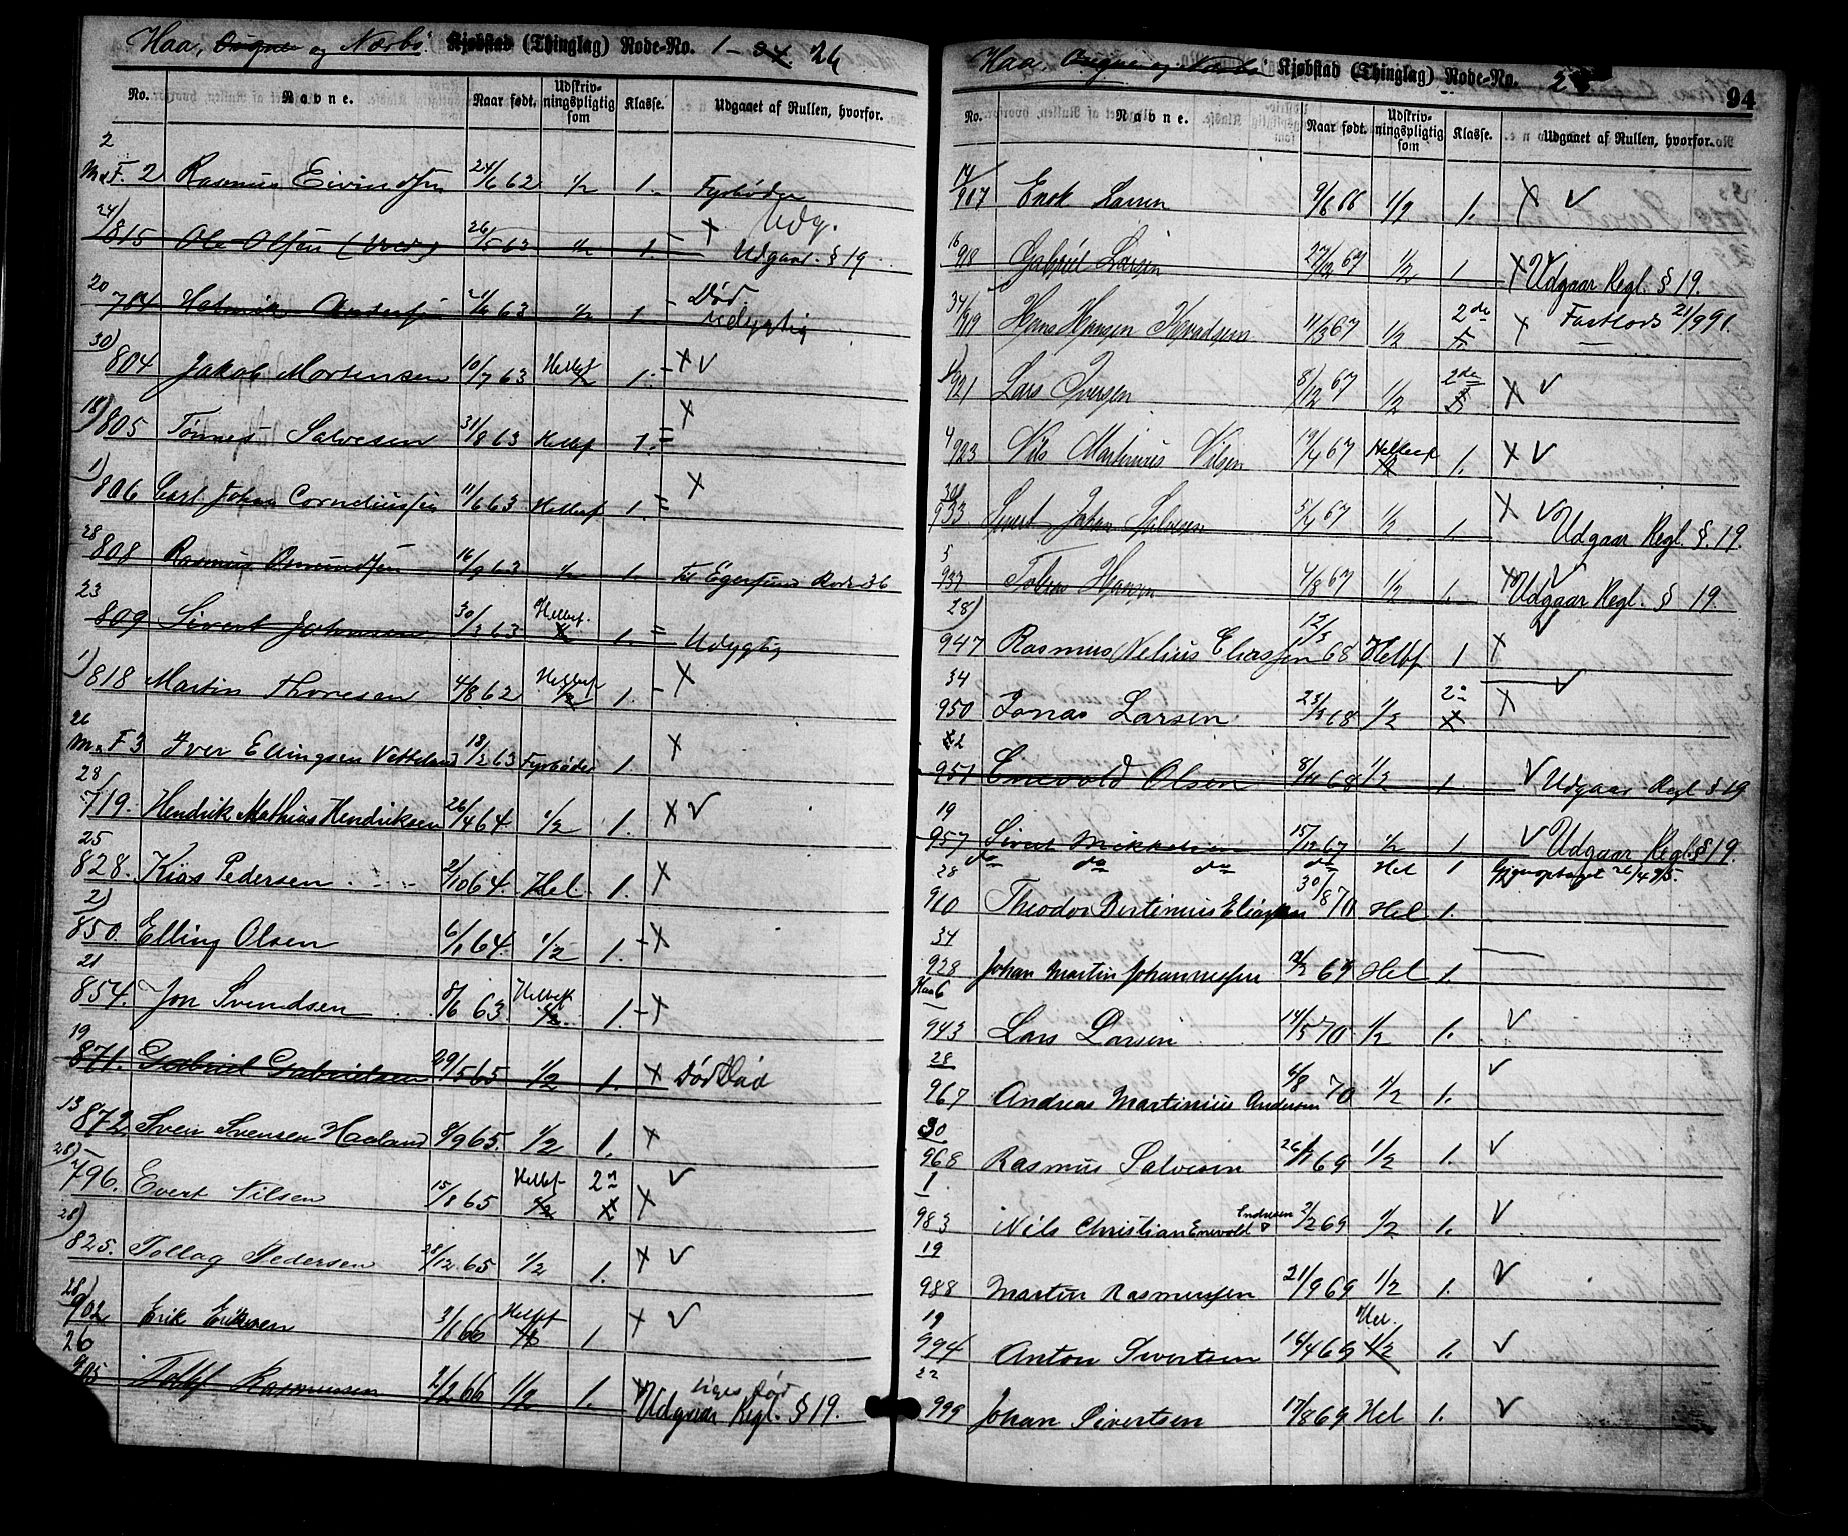 Haa, Ougne og Nærbø. Kjøbstad (Thinglag) Rode-No. 1 - 34. 26
No. Navne. Naar født. Udskriv-ningspligtig som Klasse. Udgaaet af Rullen, hvorfor.
2
M.F. 2 Rasmus Eivindsen 24/6 62 1/2 1. Fyrbøder
Udg.
24/815 Ole Olsen 26/5 63 1/2 1. X Udgaar. § 19
20
704 Henrik Andersen 63 1/2 1. Død. Udygtig
30)
804 Jakob Mortensen 10/7 63 Helbef 1/2 1. X V
18)
805 Tönnes Salvesen 31/8 63 Helbef 1. X
1)
806 Carl Johan Corneliussen 11/6 63 Helbef 1. X
28
808 Rasmus Osmundsen 16/9 63 1/2 1. til Egersund Rode 36
23
809 Sivert Johnsen 30/3 63 Helbef. 1/2 1. Udygtig
1)
818 Martin Thoresen 4/8 62 Helbef 1/2 1. X
26
M.F 3 Iver Ellingsen Vetteland 18/2 63 Fyrbøder 1. X
28
719. Hendrik Mathias Hendriksen 26/4 64. 1/2 1. X V
25
828. Kias Pedersen 2/10 64. Hel. 1. X
2)
850. Elling Olsen 6/1 64. 1/2 1. X
21
854. Jon Svendsen 8/6 63. Helbef 1/2 1. X
19
871. Gabriel Gabrielsen 29/5 65 1/2 1. X Død Død
13
872. Sven Svensen Haaland 8/9 65. 1/2 1. X
28)
796. Evert Nilsen 15/8 65 Helbef 1/2 2n X V
28)
825. Tollag Pedersen 28/12 65 1/2 1. X V
28)
902 Erik Eriksen 3/1 66 Helbef 1. X V
26
905 Rasmussen 2/2 66 1/2 1. Udgaar Regl. § 19.
Haa, Ougne og Nærbø Kjøbstad (Thinglag) Rode-No. 94
No. Navne. Naar født. Udskriv-ningspligtig som Klasse. Udgaaet af Rullen, hvorfor.
14/907 Enok Larsen 9/6 66 1/2 1. X V
16
918 Gabriel Larsen 27/12 67 1/2 1. X Udgaar Regl. § 19.
34/919 Hans Hansen Knudsen 11/3 67 1/2 2de X Fastlods 21/9 91.
921 Lars Iversen 8/12 67 1/2 2de X V
4
923 Nils Martinius Nilsen 19/4 67 Helbef 1. X V
30
933 Sivert Johan Salvesen 5/4 67 1/2 1. X V Udgaar Regl. §. 19.
5
937 Tobias Hansen 4/8 67 1/2 1. X V Udgaar Regl. § 19.
28)
947 Rasmus Nelius Eliassen 12/3 68 Helbf 1 X V
34
950 Jonas Larsen 23/2 68 1/2 2n X V
32
951 Enevold Olsen 8/11 68 1/2 1. V Udgaar Regl § 19
19
957 Sivert Mikkelsen 15/12 67 1/2 1 V Udgaar Regl. § 19.
do do do do Hel 1 Gjenoptaget 26/4 95.
28
960 Theodor Bertinius Eliassen 30/8 70 Hel 1.
34
928 Johan Martin Johannessen 12/2 69 Hel 1.
Haa 6
943 Lars Larsen 14/5 70 1/2 1. V
28
967 Andreas Martinius Andersen 6/8 70 1/2 1. V
30
968 Rasmus Salvesen 26/1 69 1/2 1. V
1
983 Nils Christian Enevold Endresen 2/2 69 1/2 1. V
19
988 Martin Rasmussen 21/9 69 1/2 1. V
19
994 Anton Sivertsen 16/4 69 Hel. 1/2 1. V
22
999 Johan Sivertsen 17/8 69 Hel 1. V